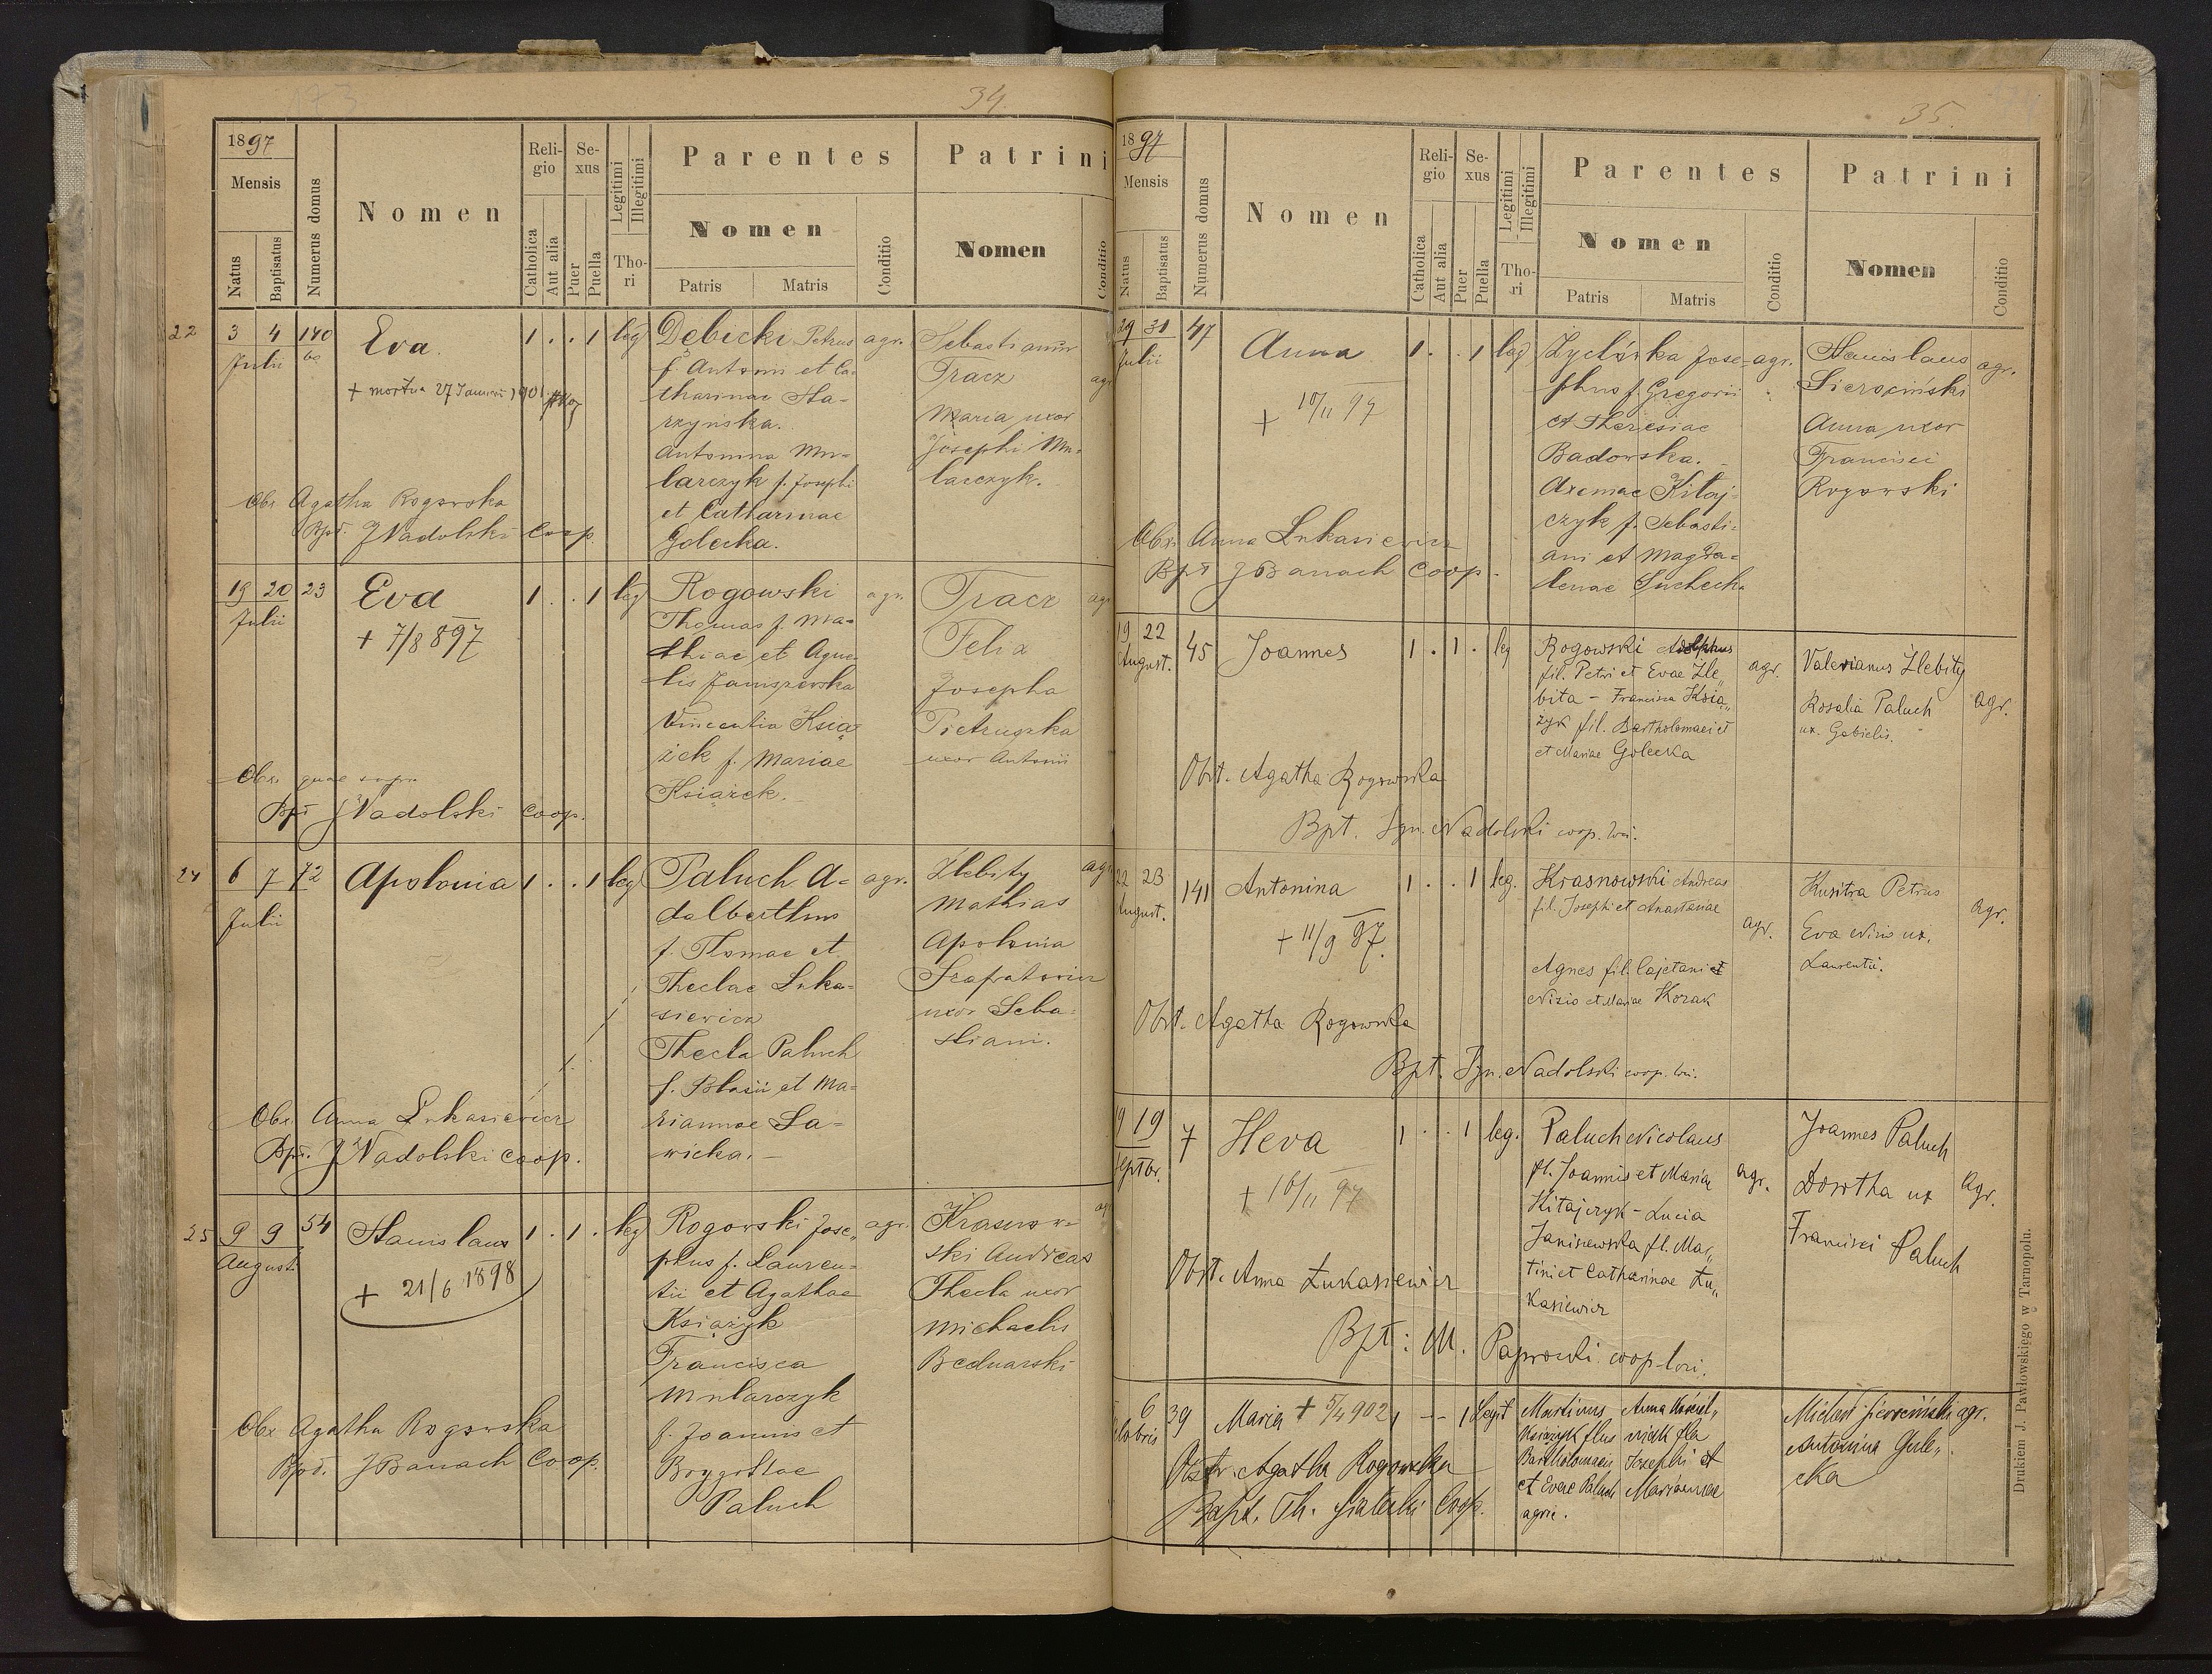 34.
1897
Mensis
Natus
Baptisatus
Numerus domus
Nomen
Religio
Catholica
Aut alia
Sexus
Puer
Puella
Legitimi
Illegitimi
Thori
Parentes
Nomen
Patris
Matris
Conditio
Patrini
Nomen
Conditio
22
3 4 140
Julii
Eva
+ mortua 27 Januarii 1901
1 . . 1 leg
Dębicki Petrus agr.
f. Antonii et Ca-
tharinae Sta-
rzyńska.
Antonina Mu-
larczyk f. Josephi
et Catharinae
Golecka.
Sebastianus
Tracz
Maria uxor
Josephi Mu-
larczyk.
Obs Agatha Rogowska
Bpt. J Nadolski Coop.
19 20 23
Julii
Eva
+ 7/8 897
1 . . 1 leg
Rogowski agr.
Thomas f. Ma-
thiae et Agne-
tis Janiszewska
Vincentia Książ
żek f. Mariae
Książek.
Tracz
Felix
Josepha
Pietruszka
uxor Antonii
agr
Obs. quae supra
Bpt J Nadolski Coop.
24
6 7 72
Julii
Apolonia
1 . . 1 leg
Paluch A- agr.
dalberthus
f. Thomae et
Theclae Luka-
siewicz
Thecla Paluch
f. Blasii et Ma-
riannae Sa-
wicka.-
Zlebity agr
Mathias
Apolonia
uxor Seba-
stiani.
Obs. Anna Lukasiewicz
Bpt. J Nadolski Coop.
25
9 9 54
Augusti
Stanislaus
+ 21/6 1898
1 . 1 . leg
Rogowski Jose- agr.
phus f. Lauren-
tii et Agathae
Książyk
Francisca
Mularczyk
f. Joannis et
Brygittae
Paluch
Krasnow-
ski Andreas
Thecla uxor
Michaelis
Bednarski
Obs Agatha Rogowska
Bpt. J Banach Coop.
35.
1897
Mensis
Natus
Baptisatus
Numerus domus
Nomen
Religio
Catholica
Aut alia
Sexus
Puer
Puella
Legitimi
Illegitimi
Thori
Parentes
Nomen
Patris
Matris
Conditio
Patrini
Nomen
Conditio
29 31 47
Julii
Anna
+ 10/11 97
1 . . 1 leg
Jose- agr.
phus f. Gregorii
et Theresiae
Badowska.
Kitaj-
czyk f. Sebasti-
ani et Magda-
lenae Suchecka
Stanislaus
Sierociński
Anna uxor
Francisci
Rogowski
agr.
Obs. Anna Lukasiewicz
Bpt J Banach Coop.
19 22 45
August.
Joannes
1 . 1 . leg
Rogowski Adolphus
fil. Petri et Evae Zle„
bita - Francisca Książ„
żyk fil. Bartholomaei et
et Mariae Golecka
agr.
Valerianus Zlebity
Rosalia Paluch
ux. Gabielis.
agr.
Obst. Agatha Rogowska
Bpt. Ign. Nadolski coop. loci.
22 23 141
August.
Antonina
+ 11/9 97.
1 . . 1 leg.
Krasnowski Andreas
fil. Josephi et Anastasiae
agr.
Agnes fil. Cajetani et
Nizio et Mariae Kozak
Kusitra Petrus
Eva Nizio ux.
Laurentii.
agr.
Obst. Agatha Rogowska
Bpt. Ign. Nadolski coop. loci.
19 19 7
Septbr.
Heva
+ 16/11 97
1 . . 1 leg.
Paluch Nicolaus
fil. Joannis et Maria
Kitajczyk - Lucia
Janiszewska fl. Mar„
tini et Catharinae Łu„
kasiewicz
agr.
Joannes Paluch
Dorotha ux
Francisci Paluch
agr.
Obst. Anna Łukasiewicz
Bpt: M. Paprocki coop. loci.
6 39
Octobris
Maria + 5/4 902
1 -- 1 Legit
Martinus
flus
Bartholomaei
et Evae Paluch
agric.
Anna
fla
Josephi et
Mariannae
Michael Sierociński agr.
Antonina Gole„
cka
Obstr. Agatha Rogowska
Bapt. Th. Coop.
Drukiem J. Pawłowskiego w Tarnopolu.